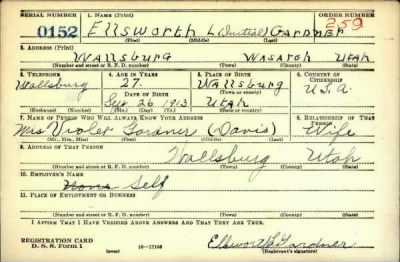 SERIAL NUMBER 1. NAME (Print) ORDER NUMBER
0152 Ellsworth L (Initial) Gardner 259
2. ADDRESS (Print)
Wallsburg Wasatch Utah
(Number and street or R. F. D. number) (Town) (County) (State)
3. TELEPHONE 4. AGE IN YEARS 5. PLACE OF BIRTH 6. COUNTRY OF CITIZENSHIP
Wallsburg 27 Wallsburg
DATE OF BIRTH (Town or county) U.S.A.
Sept 26 1913 Utah
(Exchange) (Number) (Mo.) (Day) (Yr.) (State or country)
7. NAME OF PERSON WHO WILL ALWAYS KNOW YOUR ADDRESS 8. RELATIONSHIP OF THAT PERSON
Mrs Violet Gardner (Davis) Wife
(Mr., Mrs., Miss) (First) (Middle) (Last)
9. ADDRESS OF THAT PERSON
Wallsburg Utah
(Number and street or R. F. D. number) (Town) (County) (State)
10. EMPLOYER'S NAME
None Self
11. PLACE OF EMPLOYMENT OR BUSINESS
(Number and street or R. F. D. number) (Town) (County) (State)
I AFFIRM THAT I HAVE VERIFIED ABOVE ANSWERS AND THAT THEY ARE TRUE.
REGISTRATION CARD
D. S. S. Form 1 16—17105 Ellsworth L Gardner
(Registrant's signature)